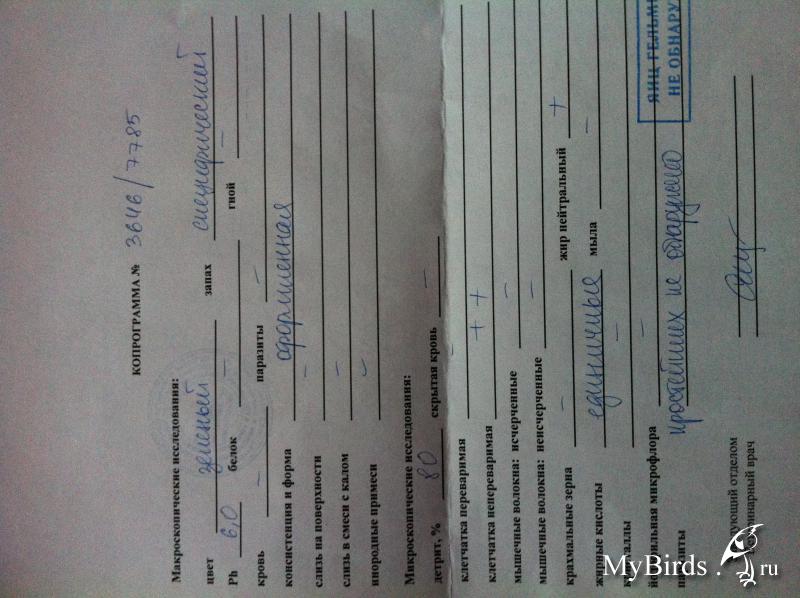 КОПРОГРАММА № 3646/7785
Макроскопические исследования:
цвет зеленый запах специфический
Ph 6,0 белок – гной –
кровь – паразиты –
консистенция и форма оформленная
слизь на поверхности –
слизь в смеси с калом –
инородные примеси –
Микроскопические исследования:
детрит, % 80 скрытая кровь –
клетчатка переваримая –
клетчатка непереваримая ++
мышечные волокна: исчерченные –
мышечные волокна: неисчерченные –
крахмальные зерна – жир нейтральный +
жирные кислоты единичные мыла –
кристаллы –
йодофильная микрофлора –
паразиты простейших не обнаружено
ЯИЦ ГЕЛЬМИ
НЕ ОБНАРУ
ующий отделом
инарный врач
MyBirds.ru